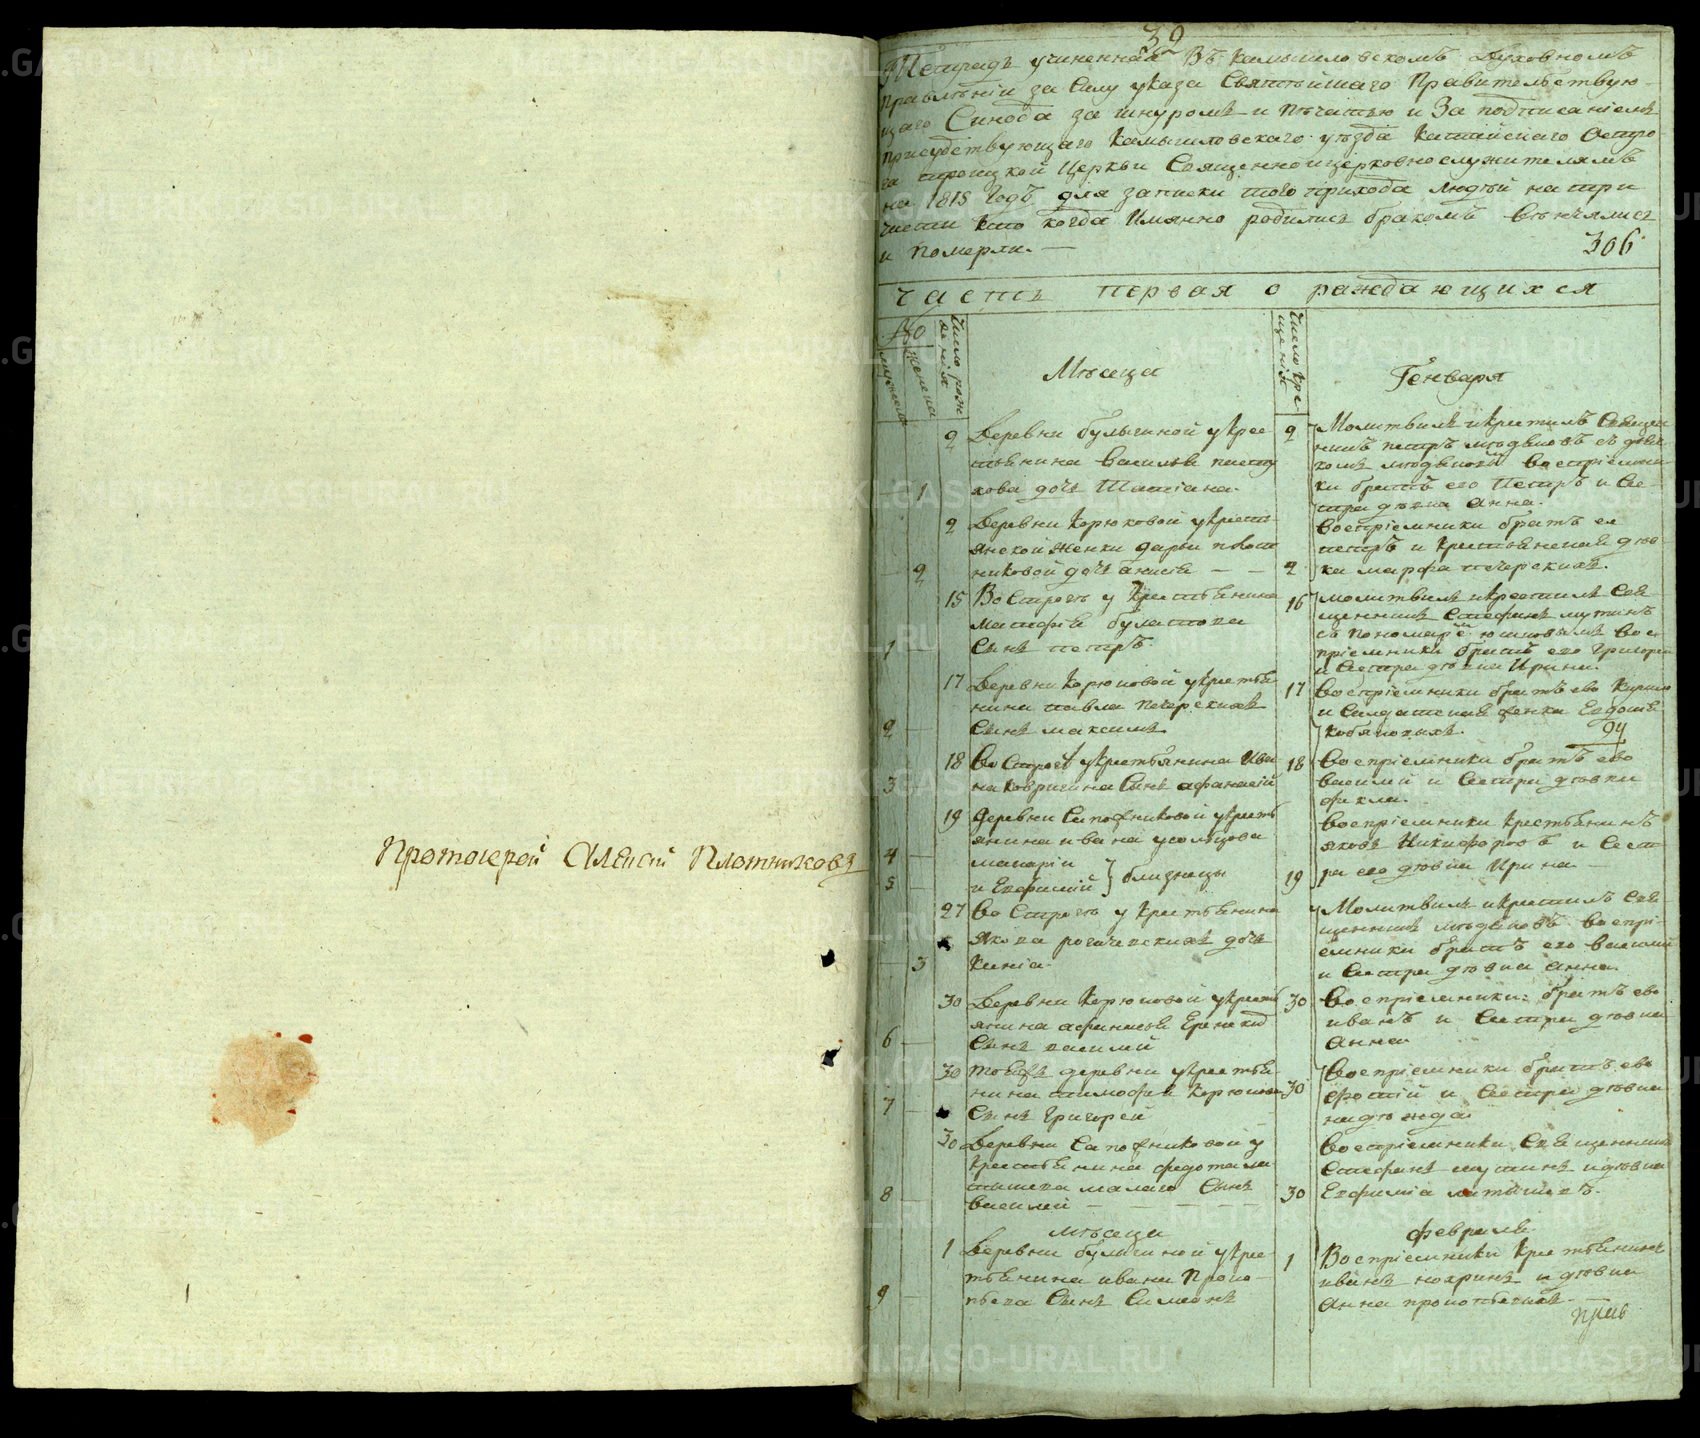 Протоиерей Алексій Плотниковъ
32
Тетрадь учиненная Въ Камышловскомъ Духовномъ
правлѣніи за силу указа Святѣйшаго Правительствую-
щаго Синода за шнуромъ и печатью и За подписаніемъ
присудствующаго Камышловскаго уѣзда Катайскаго Остро
га троицкой Церкви Священноицерковнослужителямъ
на 1815 годъ для записки того прихода людей на три
части кто когда Имянно родились бракомъ вѣнчались
и померли.
306
часть первая о раждающихся
Число рож
денія
мужеска
женска
Мѣсяца
Число кре
щенія
Генваря
2
Деревни булыгиной у крес
тьянина василья пасту
1
хова дочь Татіана.
2
Молитвилъ икрестилъ Священ
никъ петръ мѣдвѣдевъ съ дьяч
комъ воспріемни
ки братъ его Петръ и Сес
тра дѣвка анна.
2
Деревни Корюковой укресть
янской женки дарьи плот
2
никовой дочь анисья
2
воспріемники братъ ея
петръ и крестьянская дѣв
ка марфа печерскихъ.
15
Во Строгѣ у крестьянина
матфея булатова
1
Сынъ петръ
16
молитвилъ икрестилъ Свя
щенникъ Стефанъ
съ пономарёмъ вос
пріемники братъ его григорей
и Сестра дѣвка Ирина.
17
Деревни Корюковой укрестья
нина павла печерскихъ
2
Сынъ максимъ
17
воспріемники братъ ево Кирило
и Салдатская женка Евдокья
94
18
во Строгѣ укрестьянина Ива
3
на ковригина Сынъ афанасій
18
воспріемники братъ ево
василей и Сестра дѣвка
фекла.
19
деревни Сапожниковой укресть
янина ивана усольцова
4
макарій
5
и Евфимій } близнецы
19
воспріемники крестьянинъ
яковъ Никифоровъ и Сест
ра его дѣвка Ирина
27
во Строгѣ у крестьянина
Якова рогачевскихъ дочь
3
Ксенія
Молитвилъ икрестилъ Свя
щенникъ мѣдвѣдевъ воспрі-
емники братъ его василій
и Сестра дѣвка анна.
30
Деревни Корюковой укресть
янина афанасья
6
Сынъ василей
30
воспріемники: братъ ево
иванъ и Сестра дѣвка
анна
30
тояже деревни укрестья
нина тимофея Корюкова
7
Сынъ григорей
30
воспріемники братъ ево
фотій и Сестра дѣвка
надѣжда
30
Деревни Сапожниковой у
крестьянина федота ла
тышева малаго Сынъ
8
василей
30
воспріемники Священникъ
Стефанъ идѣвка
Евфимія латышевъ.
мѣсяца
февраля
1
Деревни булыгиной укрес
тьянина ивана Проко-
9
пьева Сынъ Симеонъ
1
Воспріемники крестьянинъ
иванъ и дѣвка
анна прокопьевыхъ